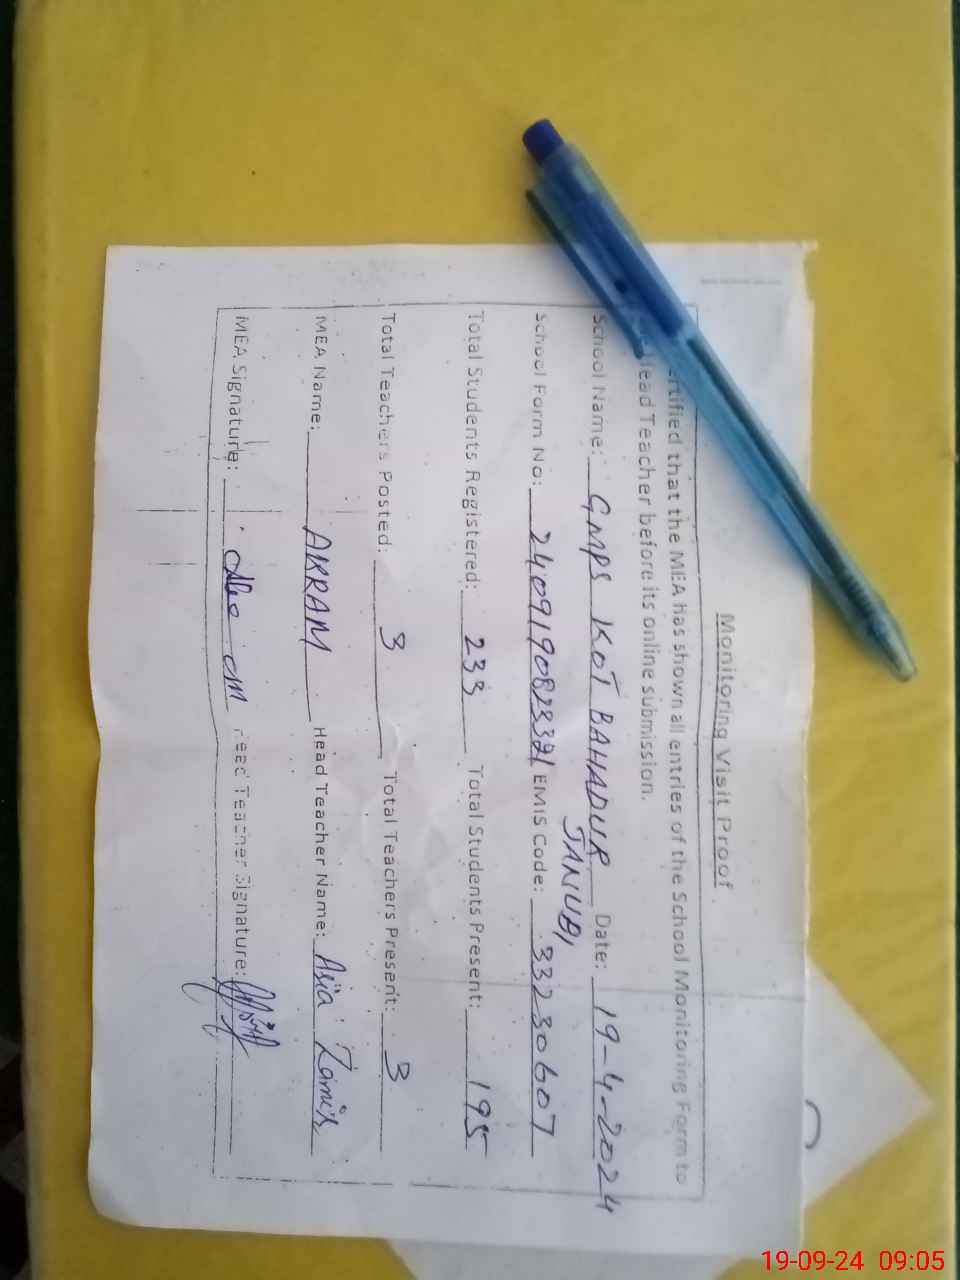 Monitoring Visit Proof
ertified that the MEA has shown all entries of the School Monitoring Form to
Head Teacher before its online submission.
School Name: GMPS KOT BAHADUR JANUBI Date: 19-4-2024
School Form No: EMIS Code: 33230607
Total Students Registered: 233 Total Students Present: 195
Total Teachers Posted: 3 Total Teachers Present: 3
MEA Name: AKRAM Head Teacher Name: Asia Zamir
MEA Signature: Head Teacher Signature:
19-09-24 09:05